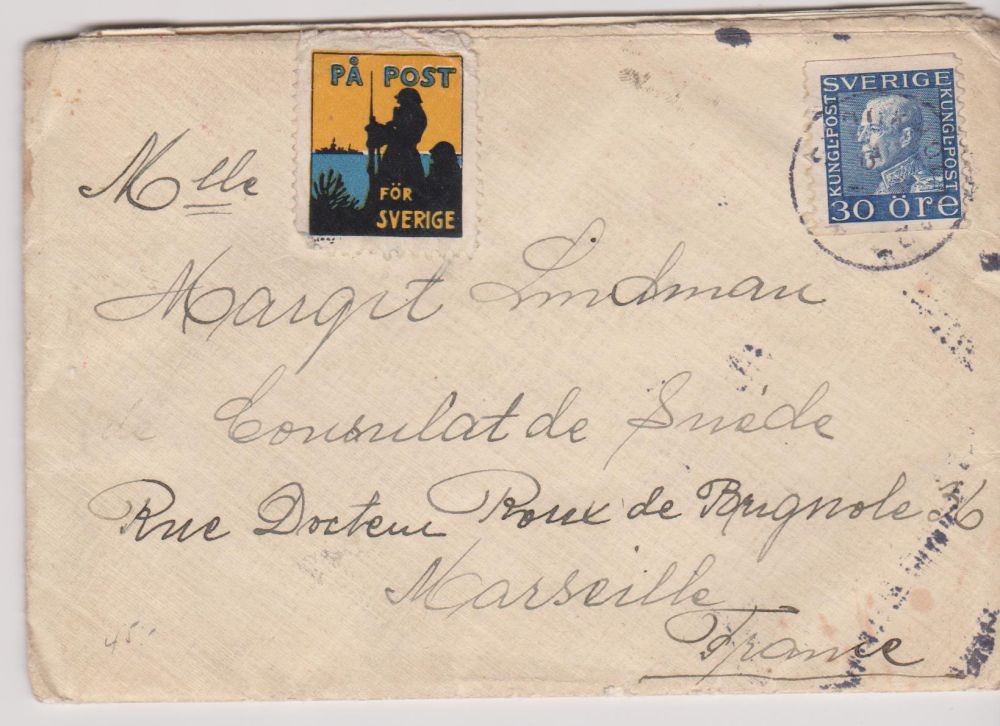 PÅ POST
FÖR
SVERIGE
SVERIGE
KUNGL·POST
KUNGL·POST
30 öre
Mlle
Margit Lindman
Consulat de Suède
Rue Docteur Roux de Brignole
Marseille
France
45.